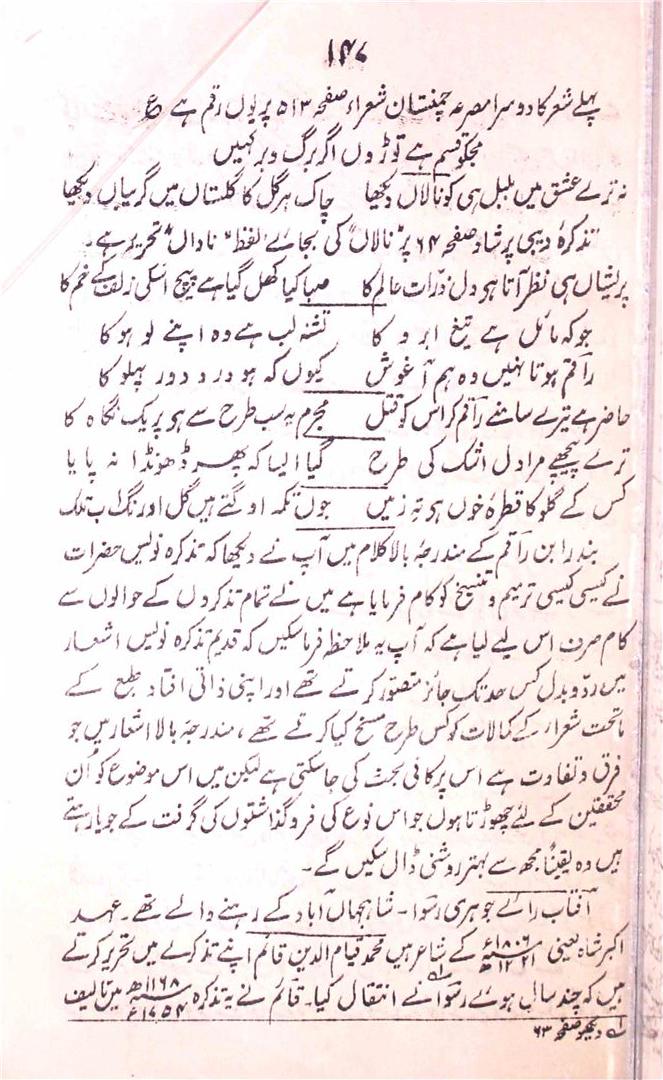 ۱۴۷
پہلے شعر کا دوسرا مصرعہ چمنستان شعراء صفحہ ۵۱۳ پر یوں رقم ہے ع
مجکو قسم ہے توڑوں اگر برگ و بر کہیں
نہ ترے عشق میں بلبل ہی کو نالاں دیکھا چاک ہر گل کا گلستاں میں گریباں دیکھا
تذکرۂ دیبی پرشاد صفحہ ۶۴ پر "نالاں" کی بجائے لفظ "ناداں" تحریر ہے۔
پریشاں ہی نظر آتا ہر دل ذرّات عالم کا صبا کیا کھل گیا ہے پیچ اسکی زلف کے خم کا
جو کہ مائل ہے تیغ ابرو کا تشنہ لب ہے وہ اپنے لوہو کا
راقم ہوتا نہیں وہ ہم آغوش کیوں کہ ہو درد دور پہلو کا
حاضر ہے تیرے سامنے راقم کر اس کو قتل مجرم یہ سب طرح سے ہو پر یک نگاہ کا
ترے پیچھے مرا دل اشک کی طرح گیا ایسا کہ پھر ڈھونڈا نہ پایا
کس کے گلو کا قطرۂ خوں ہو تہ زمیں جوں تکمہ اوگتے ہیں گل اورنگ اب تلک
بندرابن راقم کے مندرجۂ بالا کلام میں آپ نے دیکھا کہ تذکرہ نویس حضرات
نے کیسی کیسی ترمیم و تنسیخ کو کام فرمایا ہے میں نے تمام تذکروں کے حوالوں سے
کام صرف اس لیے لیا ہے کہ آپ یہ ملاحظہ فرما سکیں کہ قدیم تذکرہ نویس اشعار
میں ردّ و بدل کس حد تک جائز متصوّر کرتے تھے اور اپنی ذاتی افتاد طبع کے
ماتحت شعراء کے کمالات کو کس طرح مسخ کیا کرتے تھے، مندرجۂ بالا اشعار میں جو
فرق و تفاوت ہے اس پر کافی بحث کی جاسکتی ہے لیکن میں اس موضوع کو اُن
محققین کے لئے چھوڑتا ہوں جو اس نوع کی فروگذاشتوں کی گرفت کے جویا رہتے
ہیں وہ یقیناً مجھ سے بہتر روشنی ڈال سکیں گے۔
آفتاب رائے جوہری رسوا۔ شاہجہاں آباد کے رہنے والے تھے۔ عہد
اکبر شاہ یعنی ۱۸۰۶ء ۱۲۲۱ھ کے شاعر ہیں محمد قیام الدین قائم اپنے تذکرے میں تحریر کرتے
ہیں کہ چند سال ہوئے رسوا نے انتقال کیا۔ قائم نے یہ تذکرہ ۱۱۶۸ھ ۱۷۵۴ء میں تالیف
لہ دیکھو صفحہ ۶۳